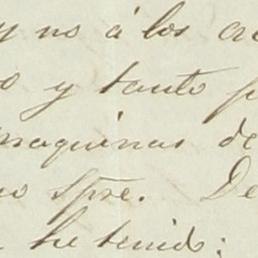 y no á los
o y tanto
maquinas de
no Spre. De
he tenido: